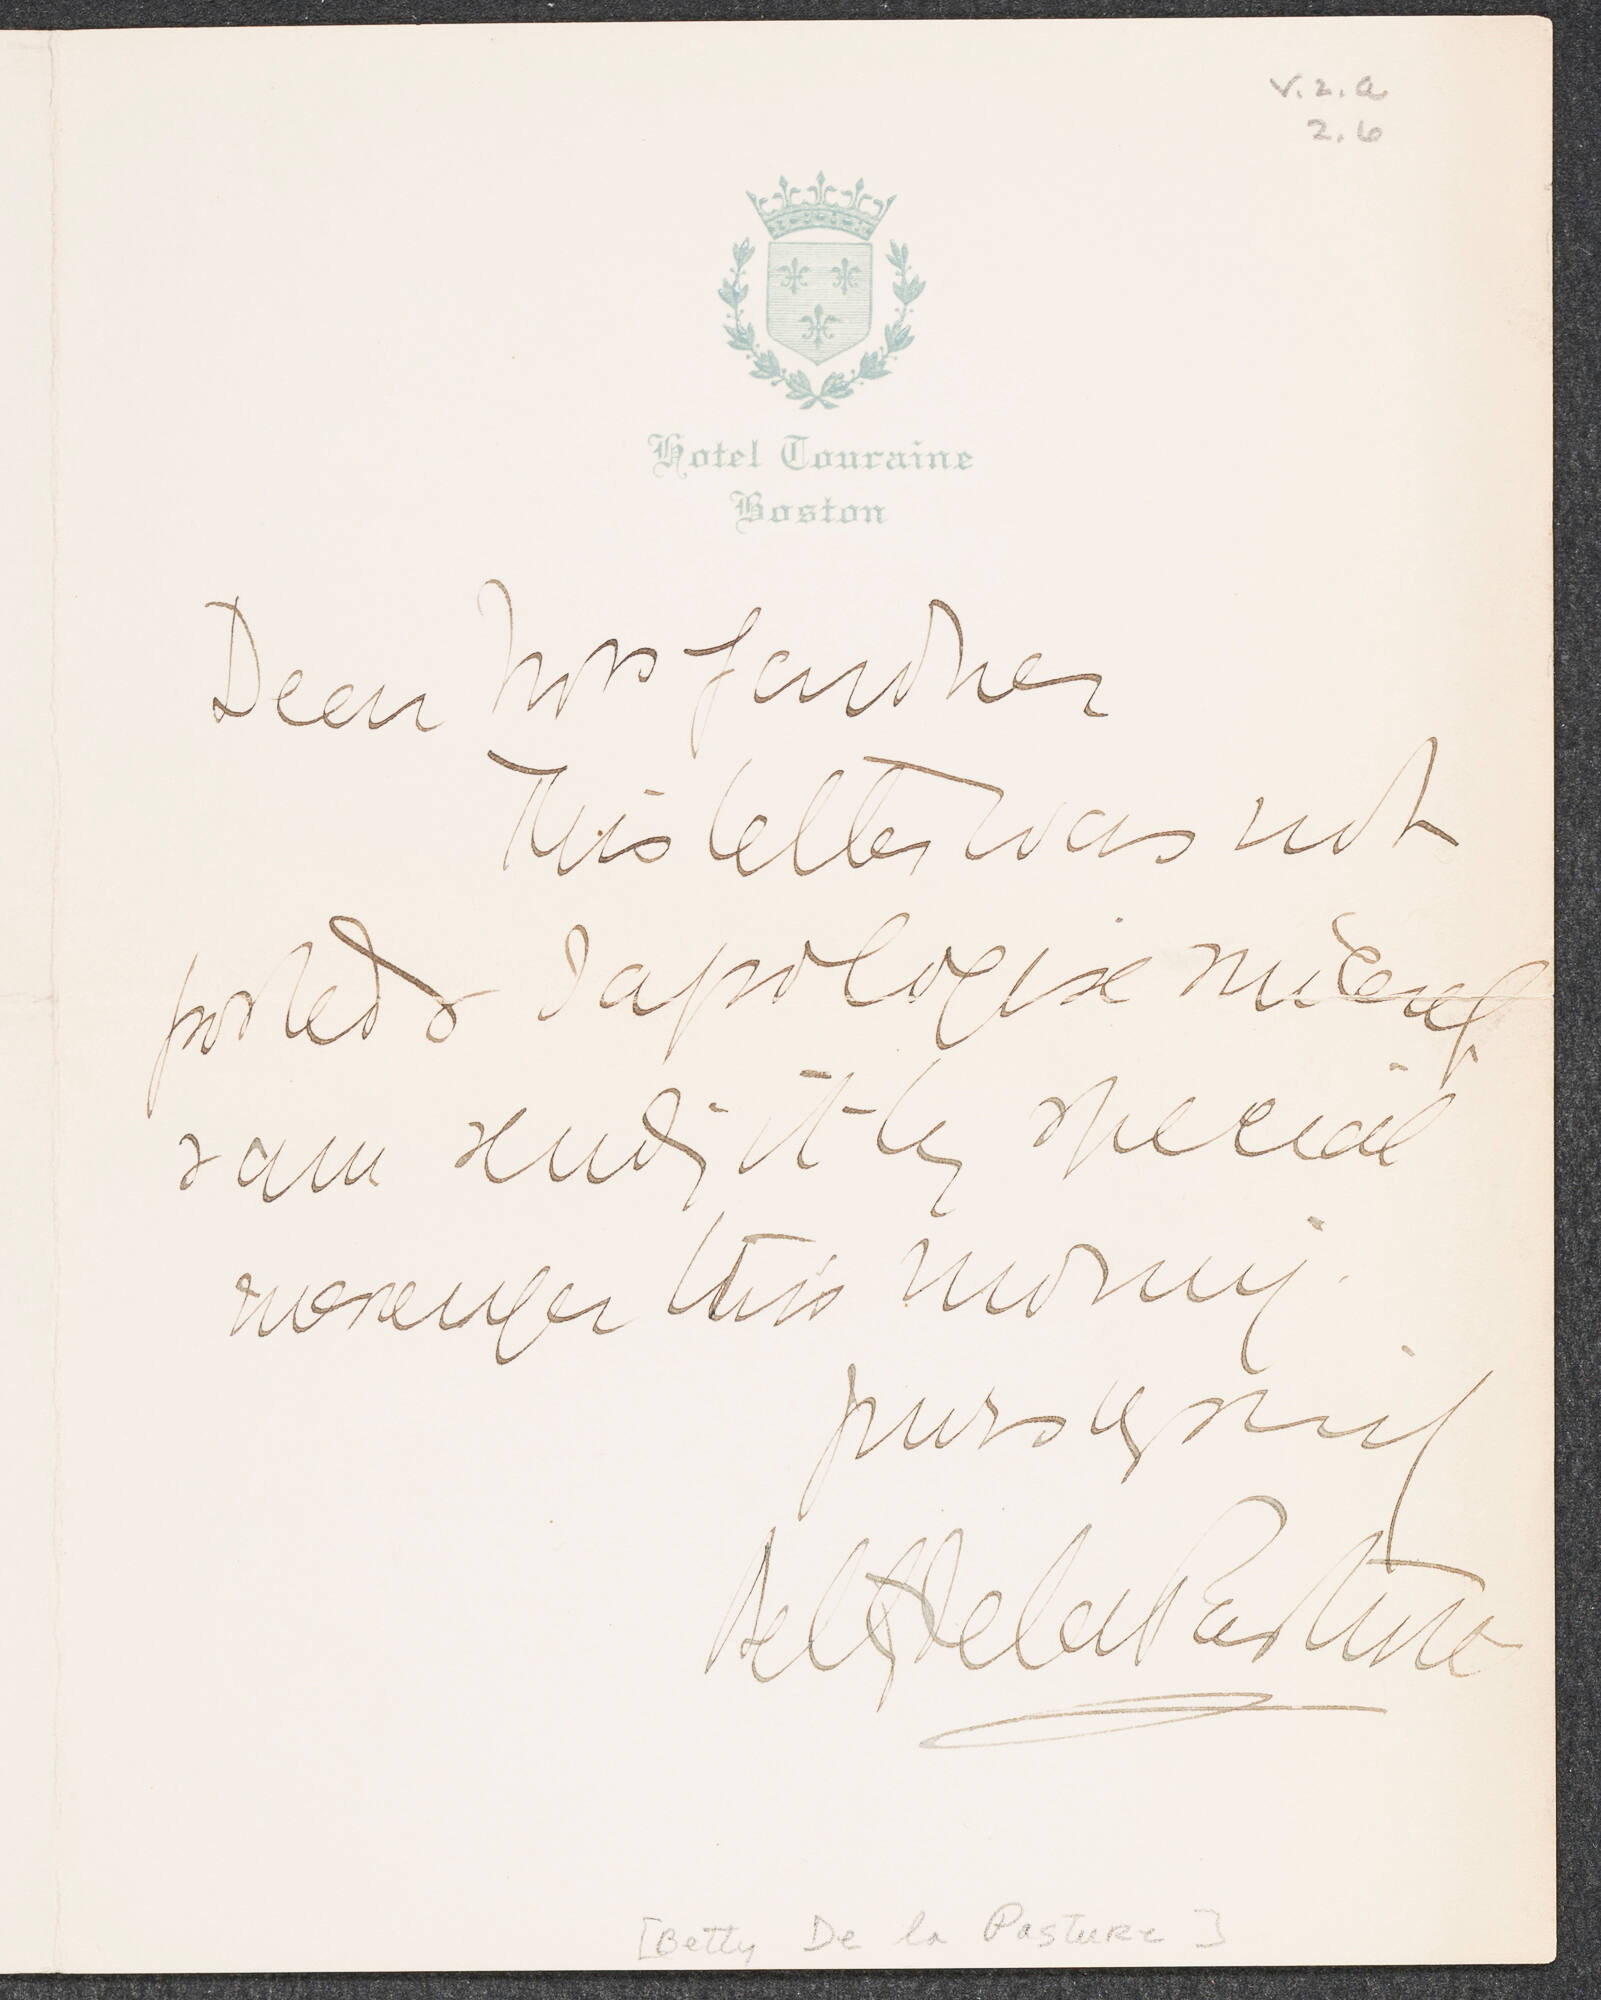 V.2.a
2.6
Hotel Touraine
Boston
Dear Mrs Gardner
This letter was not
posted & I apologise sincerely
& am sendg it by special
messenger this morning.
yours
Betty De la Pasture
[Betty De la Pasture]